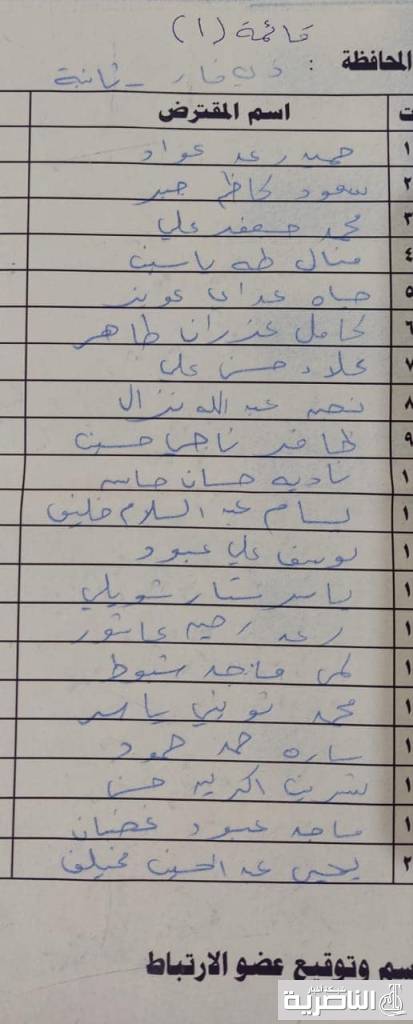 قائمة (١)
المحافظة : ذي قار - ثانية
ت اسم المقترض
١ حميد رعد عواد
٢ سعود كاظم جبر
٣ محمد جعفر علي
٤ منال طه ياسين
٥ حياه عداي عويز
٦ كامل عذران طاهر
٧ علاء حسن علي
٨ نصر عبد الله نزال
٩ ظافر ناجي حسين
١ نادية حسان جاسم
١ بسام عبد السلام
١ يوسف علي عبود
١ ياسر ستار شويلي
١ رعد رحيم عاشور
١ لمى ماجد شبوط
١ محمد ثويني ياسر
١ ساره حمد حمود
١ نسرين حسن
١ ساجد عبود غضبان
٢ يحيى عبد الحسين مخيلف
سم وتوقيع عضو الارتباط
شبكة أخبار
الناصرية